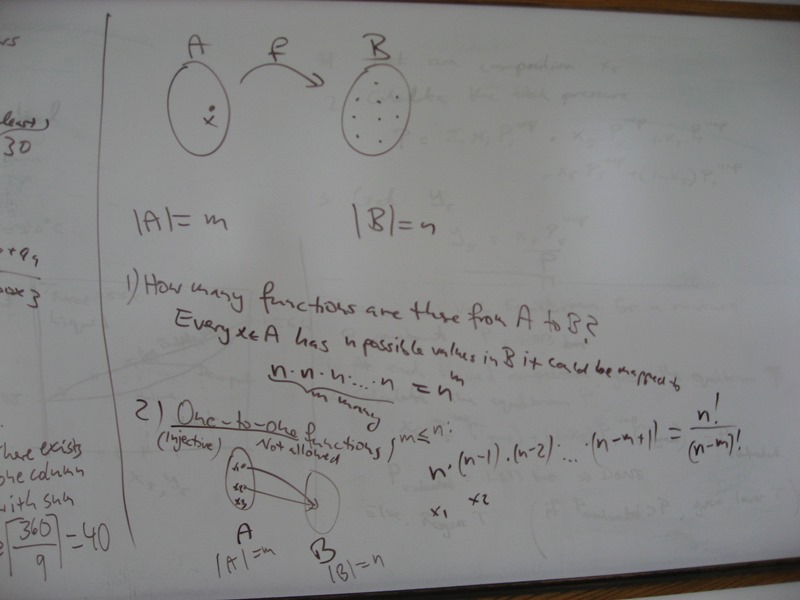 least)
30
+ a9
box 3
there exists
one column
with sum
⌈360/9⌉ = 40
A f B
x
|A| = m |B| = n
1) How many functions are there from A to B?
Every x∈A has n possible values in B it could be mapped to
n·n·n·...·n = n^m
m many
2) One-to-one functions, m≤n:
(Injective) Not allowed
n·(n-1)·(n-2)·...·(n-m+1) = n!/(n-m)!
x1 x2
x1
x2
x3
A B
|A|=m |B|=n